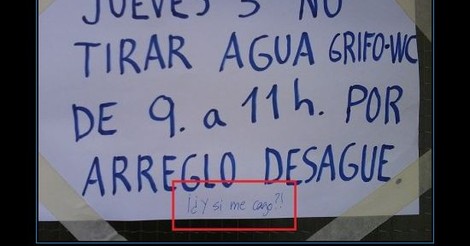 JUEVES 5 NO
TIRAR AGUA GRIFO-WC
DE 9. a 11h. POR
ARREGLO DESAGUE
¡¿Y si me cago?!